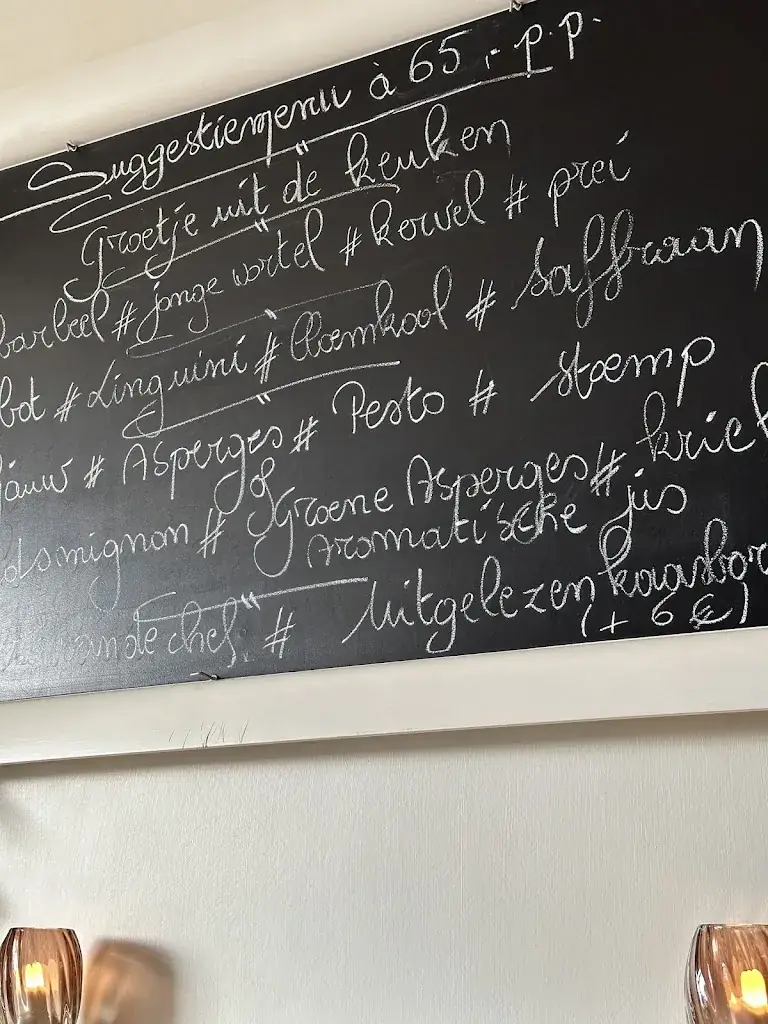 Suggestiemenu à 65,- p.p.
Groetje uit de keuken
barbeel # jonge wortel # kervel # prei
bot # Linguini # Bloemkool # Saffraan
# Asperges # Pesto # stoemp
of
mignon # Groene Asperges # kriel
Aromatische jus
chef # Uitgelezen kaasbor
(+ 6 €)